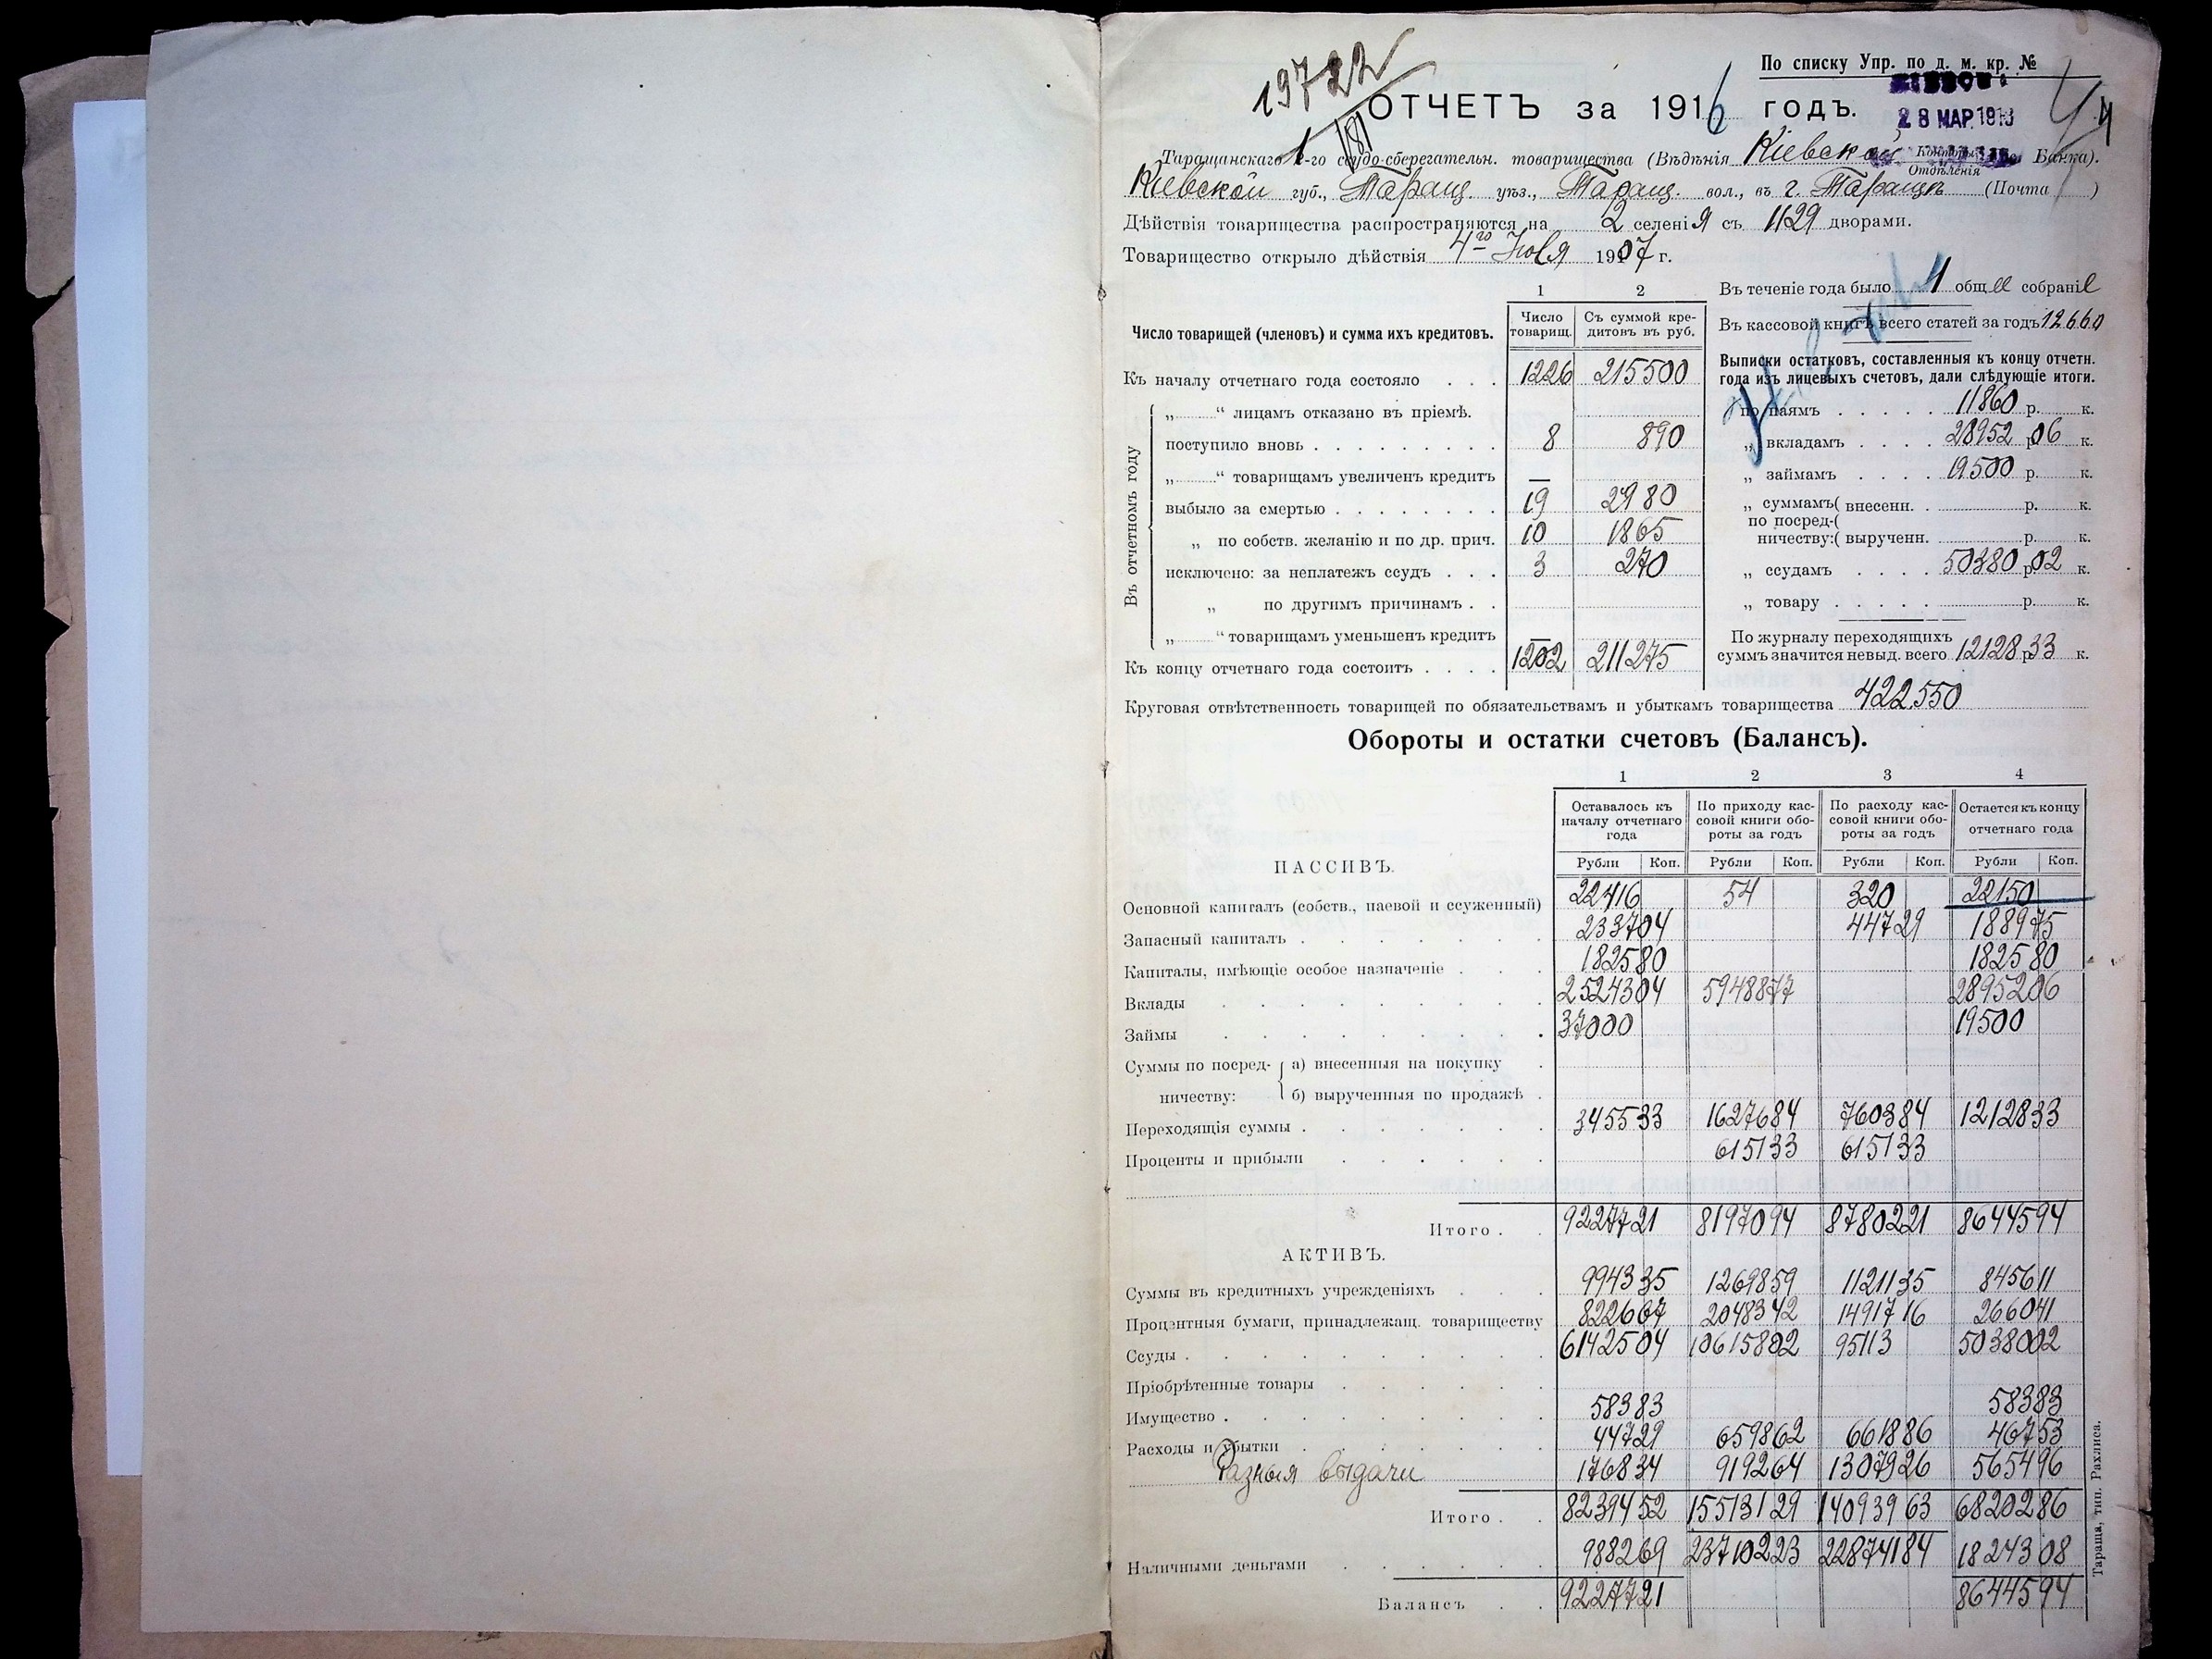 По списку Упр. по д. м. кр. №
19722
ОТЧЕТЪ за 1916 годъ.
28 МАР 191
Таращанскаго 1-го ссудо-сберегательн. товарищества (Вѣдѣнія Кіевской Конторы Отдѣленія Банка).
Кіевской губ., Таращ. уѣз., Таращ. вол., въ г. Таращѣ (Почта )
Дѣйствія товарищества распространяются на 2 селенія съ 1129 дворами.
Товарищество открыло дѣйствія 4го 1907 г.
Въ теченіе года было 1 общее собраніе
Въ кассовой книгѣ всего статей за годъ 12660
Выписки остатковъ, составленныя къ концу отчетн. года изъ лицевыхъ счетовъ, дали слѣдующіе итоги.
по паямъ . . . . . 11860 р. к.
„ вкладамъ . . . . 28952 р. 06 к.
„ займамъ . . . . 19500 р. к.
„ суммамъ ( внесенн. . р. к.
по посред- (
ничеству: ( вырученн. р. к.
„ ссудамъ . . . . 50380 р. 02 к.
„ товару . . . . . р. к.
По журналу переходящихъ
суммъ значится невыд. всего 12128 р. 33 к.
1 2
Число товарищей (членовъ) и сумма ихъ кредитовъ. Число товарищ. Съ суммой кредитовъ въ руб.
Къ началу отчетнаго года состояло . . . 1226 215500
Въ отчетномъ году
„ “ лицамъ отказано въ пріемѣ.
поступило вновь . . . . . . . . . 8 890
„ “ товарищамъ увеличенъ кредитъ —
выбыло за смертью . . . . . . . . 19 2980
„ по собств. желанію и по др. прич. 10 1865
исключено: за неплатежъ ссудъ . . . 3 270
„ по другимъ причинамъ . .
„ “ товарищамъ уменьшенъ кредитъ —
Къ концу отчетнаго года состоитъ . . . . 1202 211275
Круговая отвѣтственность товарищей по обязательствамъ и убыткамъ товарищества 422550
Обороты и остатки счетовъ (Балансъ).
1 2 3 4
Оставалось къ началу отчетнаго года По приходу кассовой книги обороты за годъ По расходу кассовой книги обороты за годъ Остается къ концу отчетнаго года
Рубли Коп. Рубли Коп. Рубли Коп. Рубли Коп.
ПАССИВЪ.
Основной капиталъ (собств., паевой и ссуженный) 22416 54 320 22150
Запасный капиталъ . 2337 04 447 29 1889 75
Капиталы, имѣющіе особое назначеніе . 1825 80 1825 80
Вклады . 25243 04 59488 77 28952 06
Займы . 37000 19500
Суммы по посред- { а) внесенныя на покупку
ничеству: б) вырученныя по продажѣ .
Переходящія суммы . 3455 33 16276 84 7603 84 12128 33
Проценты и прибыли . 6151 33 6151 33
Итого . 92277 21 81970 94 87802 21 86445 94
АКТИВЪ.
Суммы въ кредитныхъ учрежденіяхъ . 9943 35 12698 59 11211 35 8456 11
Процентныя бумаги, принадлежащ. товариществу 8226 67 20483 42 14917 16 2660 41
Ссуды . 61425 04 106158 02 95113 50380 02
Пріобрѣтенные товары .
Имущество . 583 83 583 83
Расходы и убытки . 447 29 6598 62 6618 86 467 53
Разныя выдачи 1768 34 9192 64 13079 26 5654 96
Итого . 82394 52 155131 29 140939 63 68202 86
Наличными деньгами . 9882 69 237102 23 228741 84 18243 08
Балансъ . 92277 21 86445 94
Тараща, тип. Рахлиса.